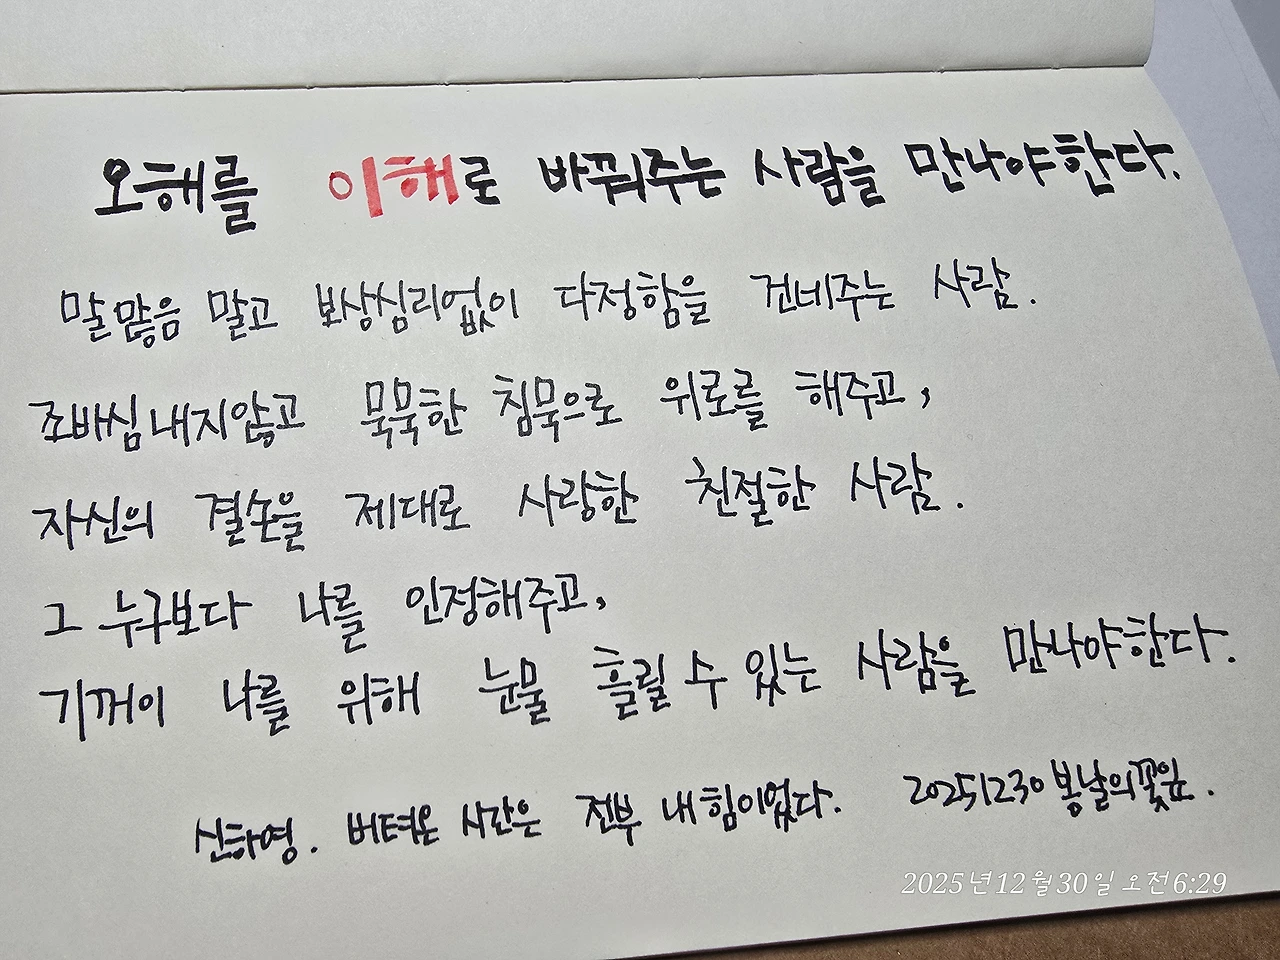 오해를 이해로 바꿔주는 사람을 만나야한다.
말많음 말고 보상심리없이 다정함을 건네주는 사람.
조바심내지않고 묵묵한 침묵으로 위로를 해주고,
자신의 결손을 제대로 사랑한 친절한 사람.
그 누구보다 나를 인정해주고,
기꺼이 나를 위해 눈물 흘릴 수 있는 사람을 만나야한다.
신하영. 버텨온 시간은 전부 내힘이었다. 20251230 봄날의꽃잎.
2025년12월30일 오전6:29